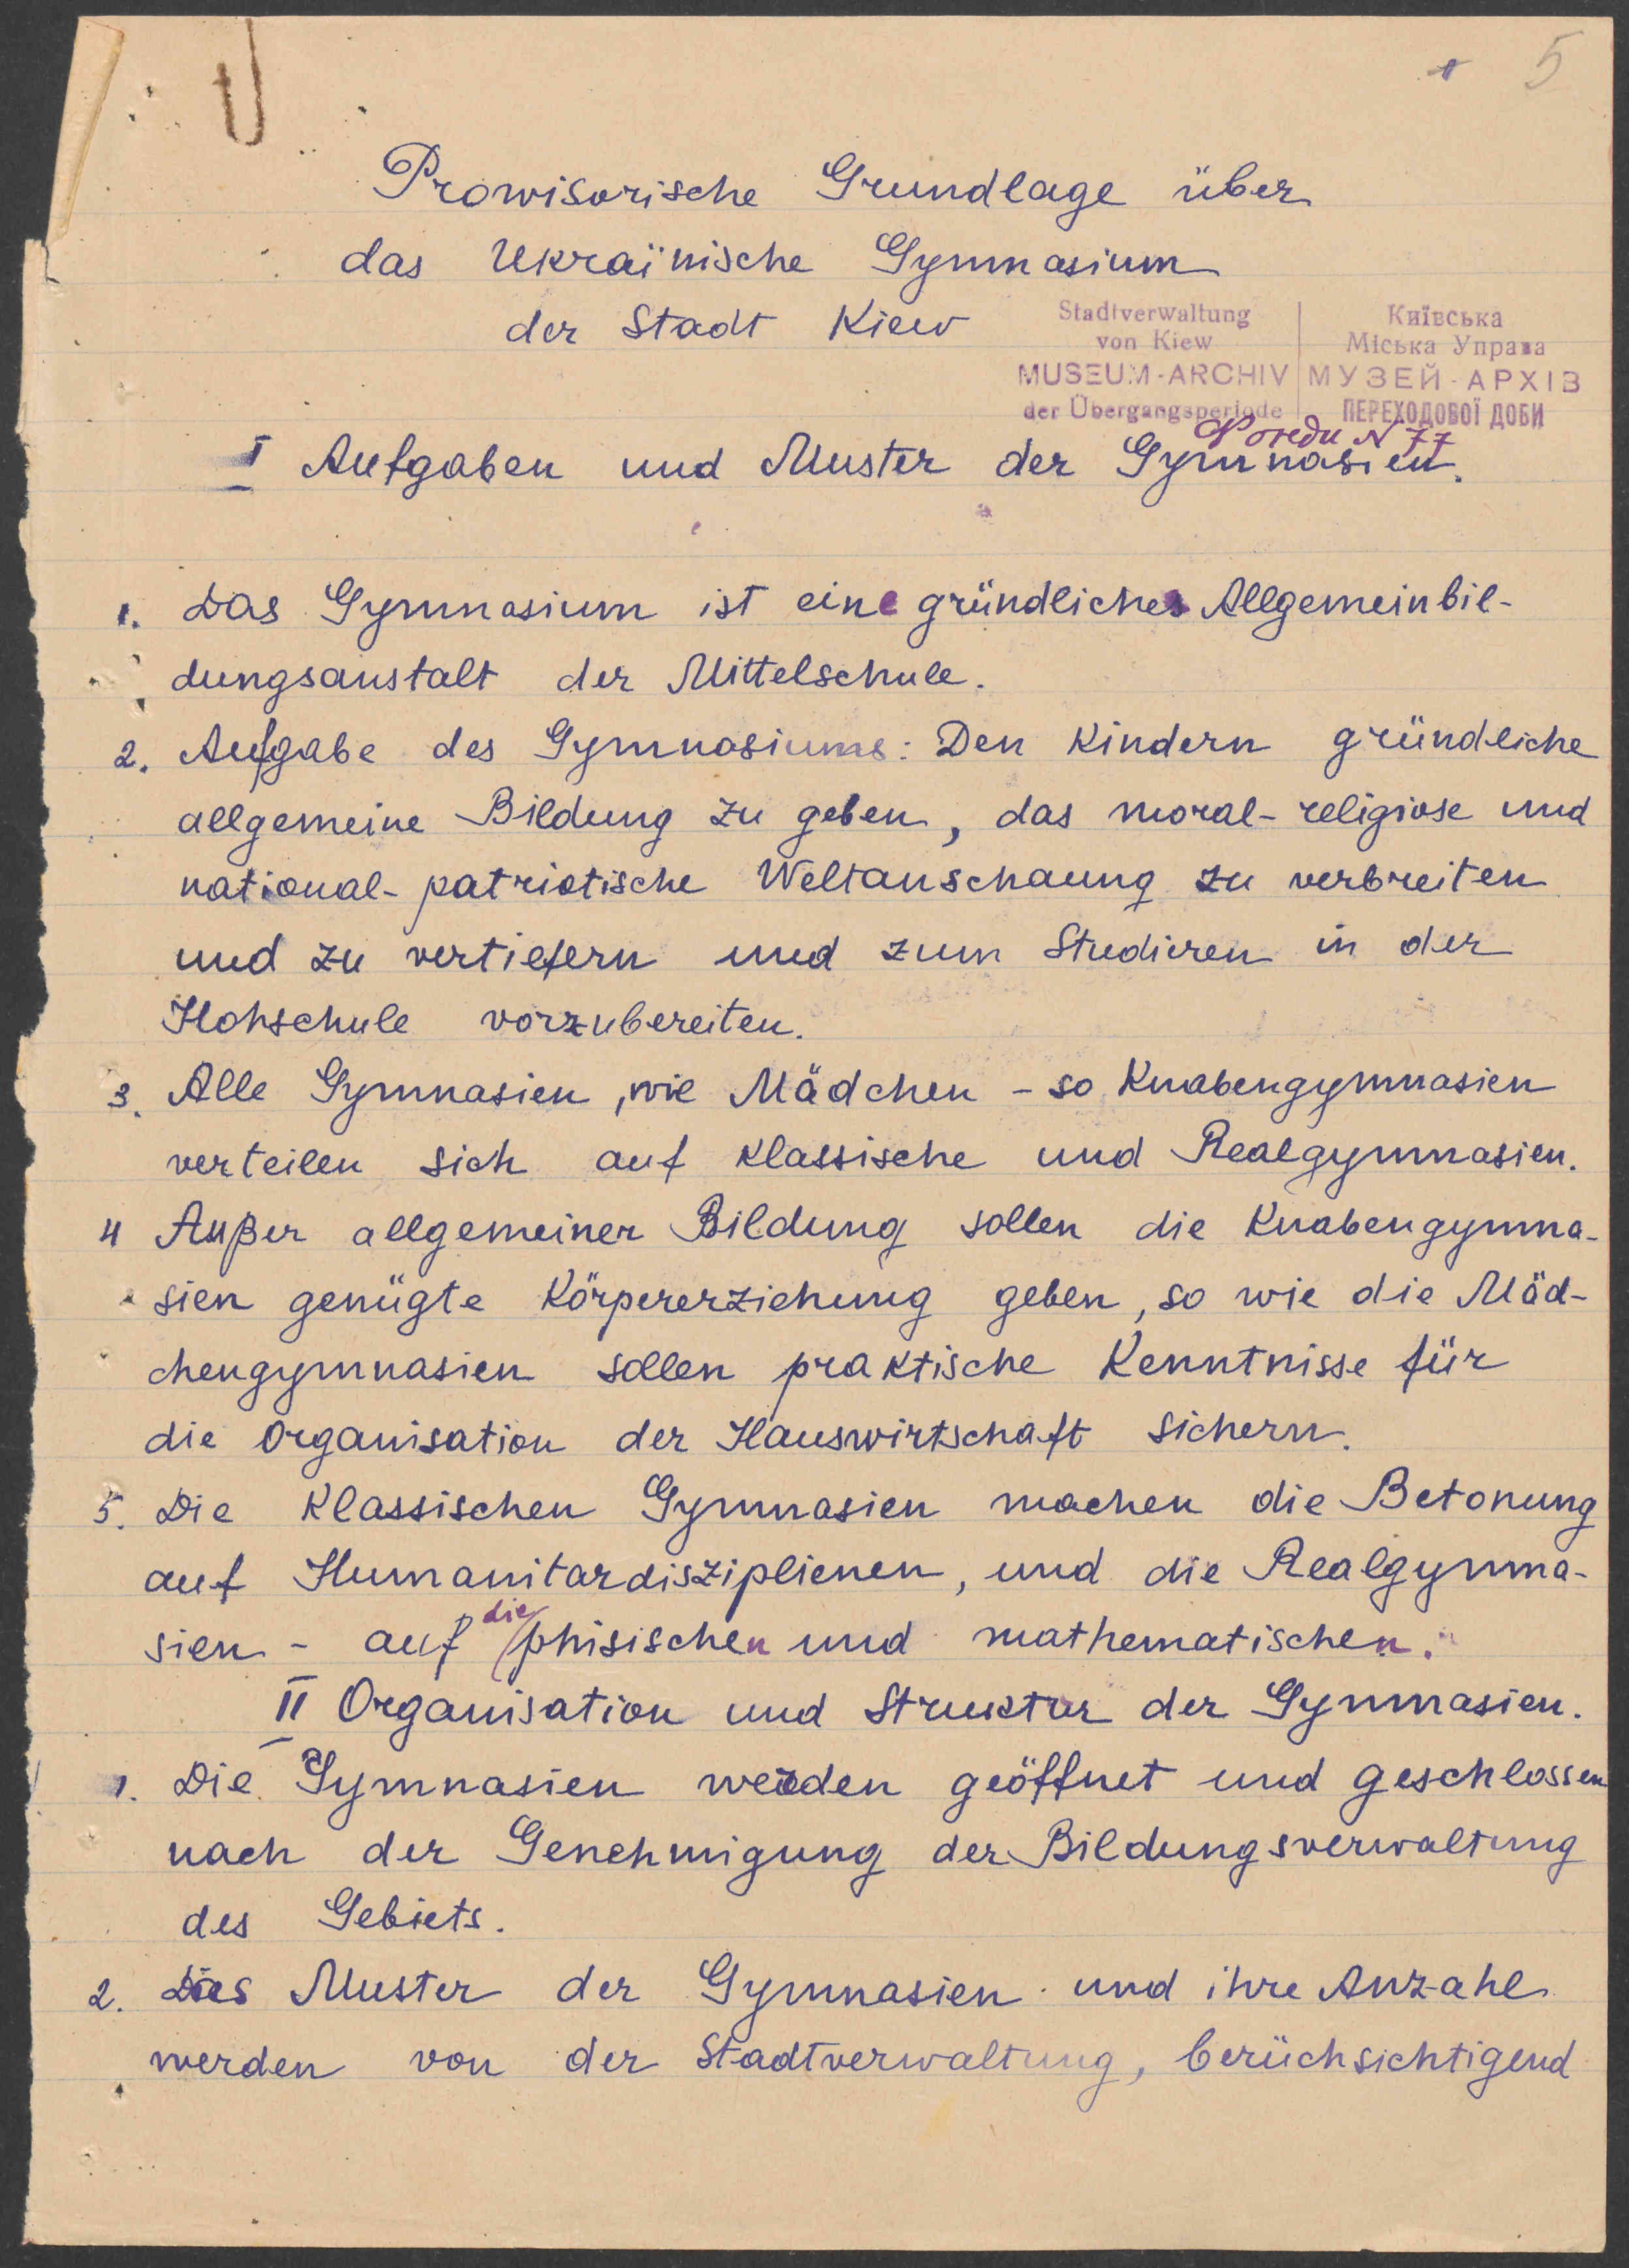 5
Prowisorische Grundlage über
das Ukraïnische Gymnasium
der Stadt Kiew
Stadtverwaltung
von Kiew
MUSEUM-ARCHIV
der Übergangsperiode
Київська
Міська Управа
МУЗЕЙ-АРХІВ
ПЕРЕХОДОВОЇ ДОБИ
N 77
I Aufgaben und Muster der Gymnasien.
1. Das Gymnasium ist eine gründliches Allgemeinbil-
dungsanstalt der Mittelschule.
2. Aufgabe des Gymnasiums: Den Kindern gründliche
allgemeine Bildung zu geben, das moral-religiose und
national-patriotische Weltanschaung zu verbreiten
und zu vertiefern und zum Studieren in der
Hohschule vorzubereiten.
3. Alle Gymnasien, wie Mädchen - so Knabengymnasien
verteilen sich auf klassische und Realgymnasien.
4 Außer allgemeiner Bildung sollen die Knabengymna-
sien genügte Körpererziehung geben, so wie die Mäd-
chengymnasien sollen praktische Kenntnisse für
die Organisation der Hauswirtschaft sichern.
5. Die Klassischen Gymnasien machen die Betonung
auf Humanitardisziplienen, und die Realgymna-
sien - auf die phisischen und mathematischen.
II Organisation und Struktur der Gymnasien.
1. Die Gymnasien werden geöffnet und geschlossen
nach der Genehmigung der Bildungsverwaltung
des Gebiets.
2. Das Muster der Gymnasien und ihre Anzahl
werden von der Stadtverwaltung, berüchsichtigend